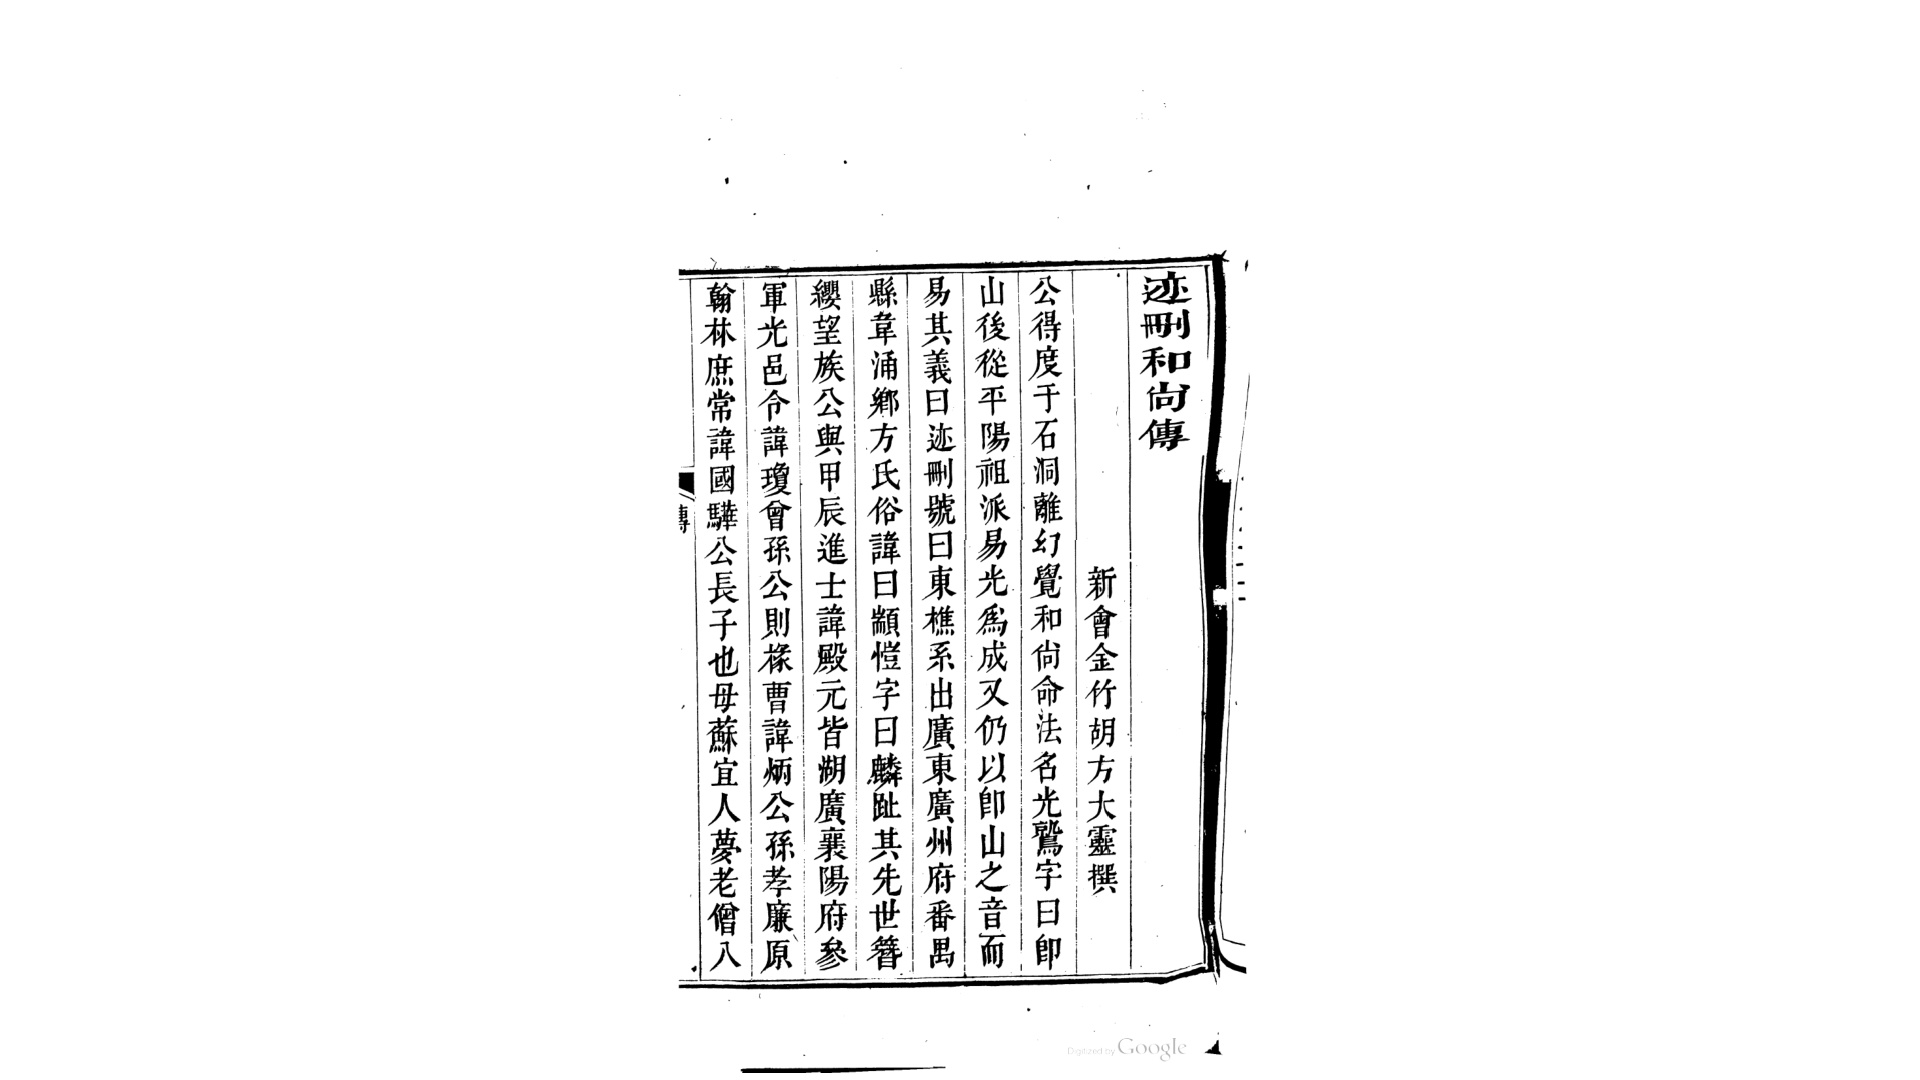 迹刪和尙傳
新會金竹胡方大靈撰
公得度于石洞離幻覺和尙命法名光鷲字曰卽
山後從平陽祖派易光爲成又仍以卽山之音而
易其義曰迹刪號曰東樵系出廣東廣州府番禺
縣韋涌鄉方氏俗諱曰顓愷字曰麟趾其先世簪
纓望族公與甲辰進士諱殿元皆湖廣襄陽府參
軍光邑令諱瓊曾孫公則掾曹諱炳公孫孝廉原
翰林庶常諱國驊公長子也母蘇宜人夢老僧入
傳
Digitized by Google